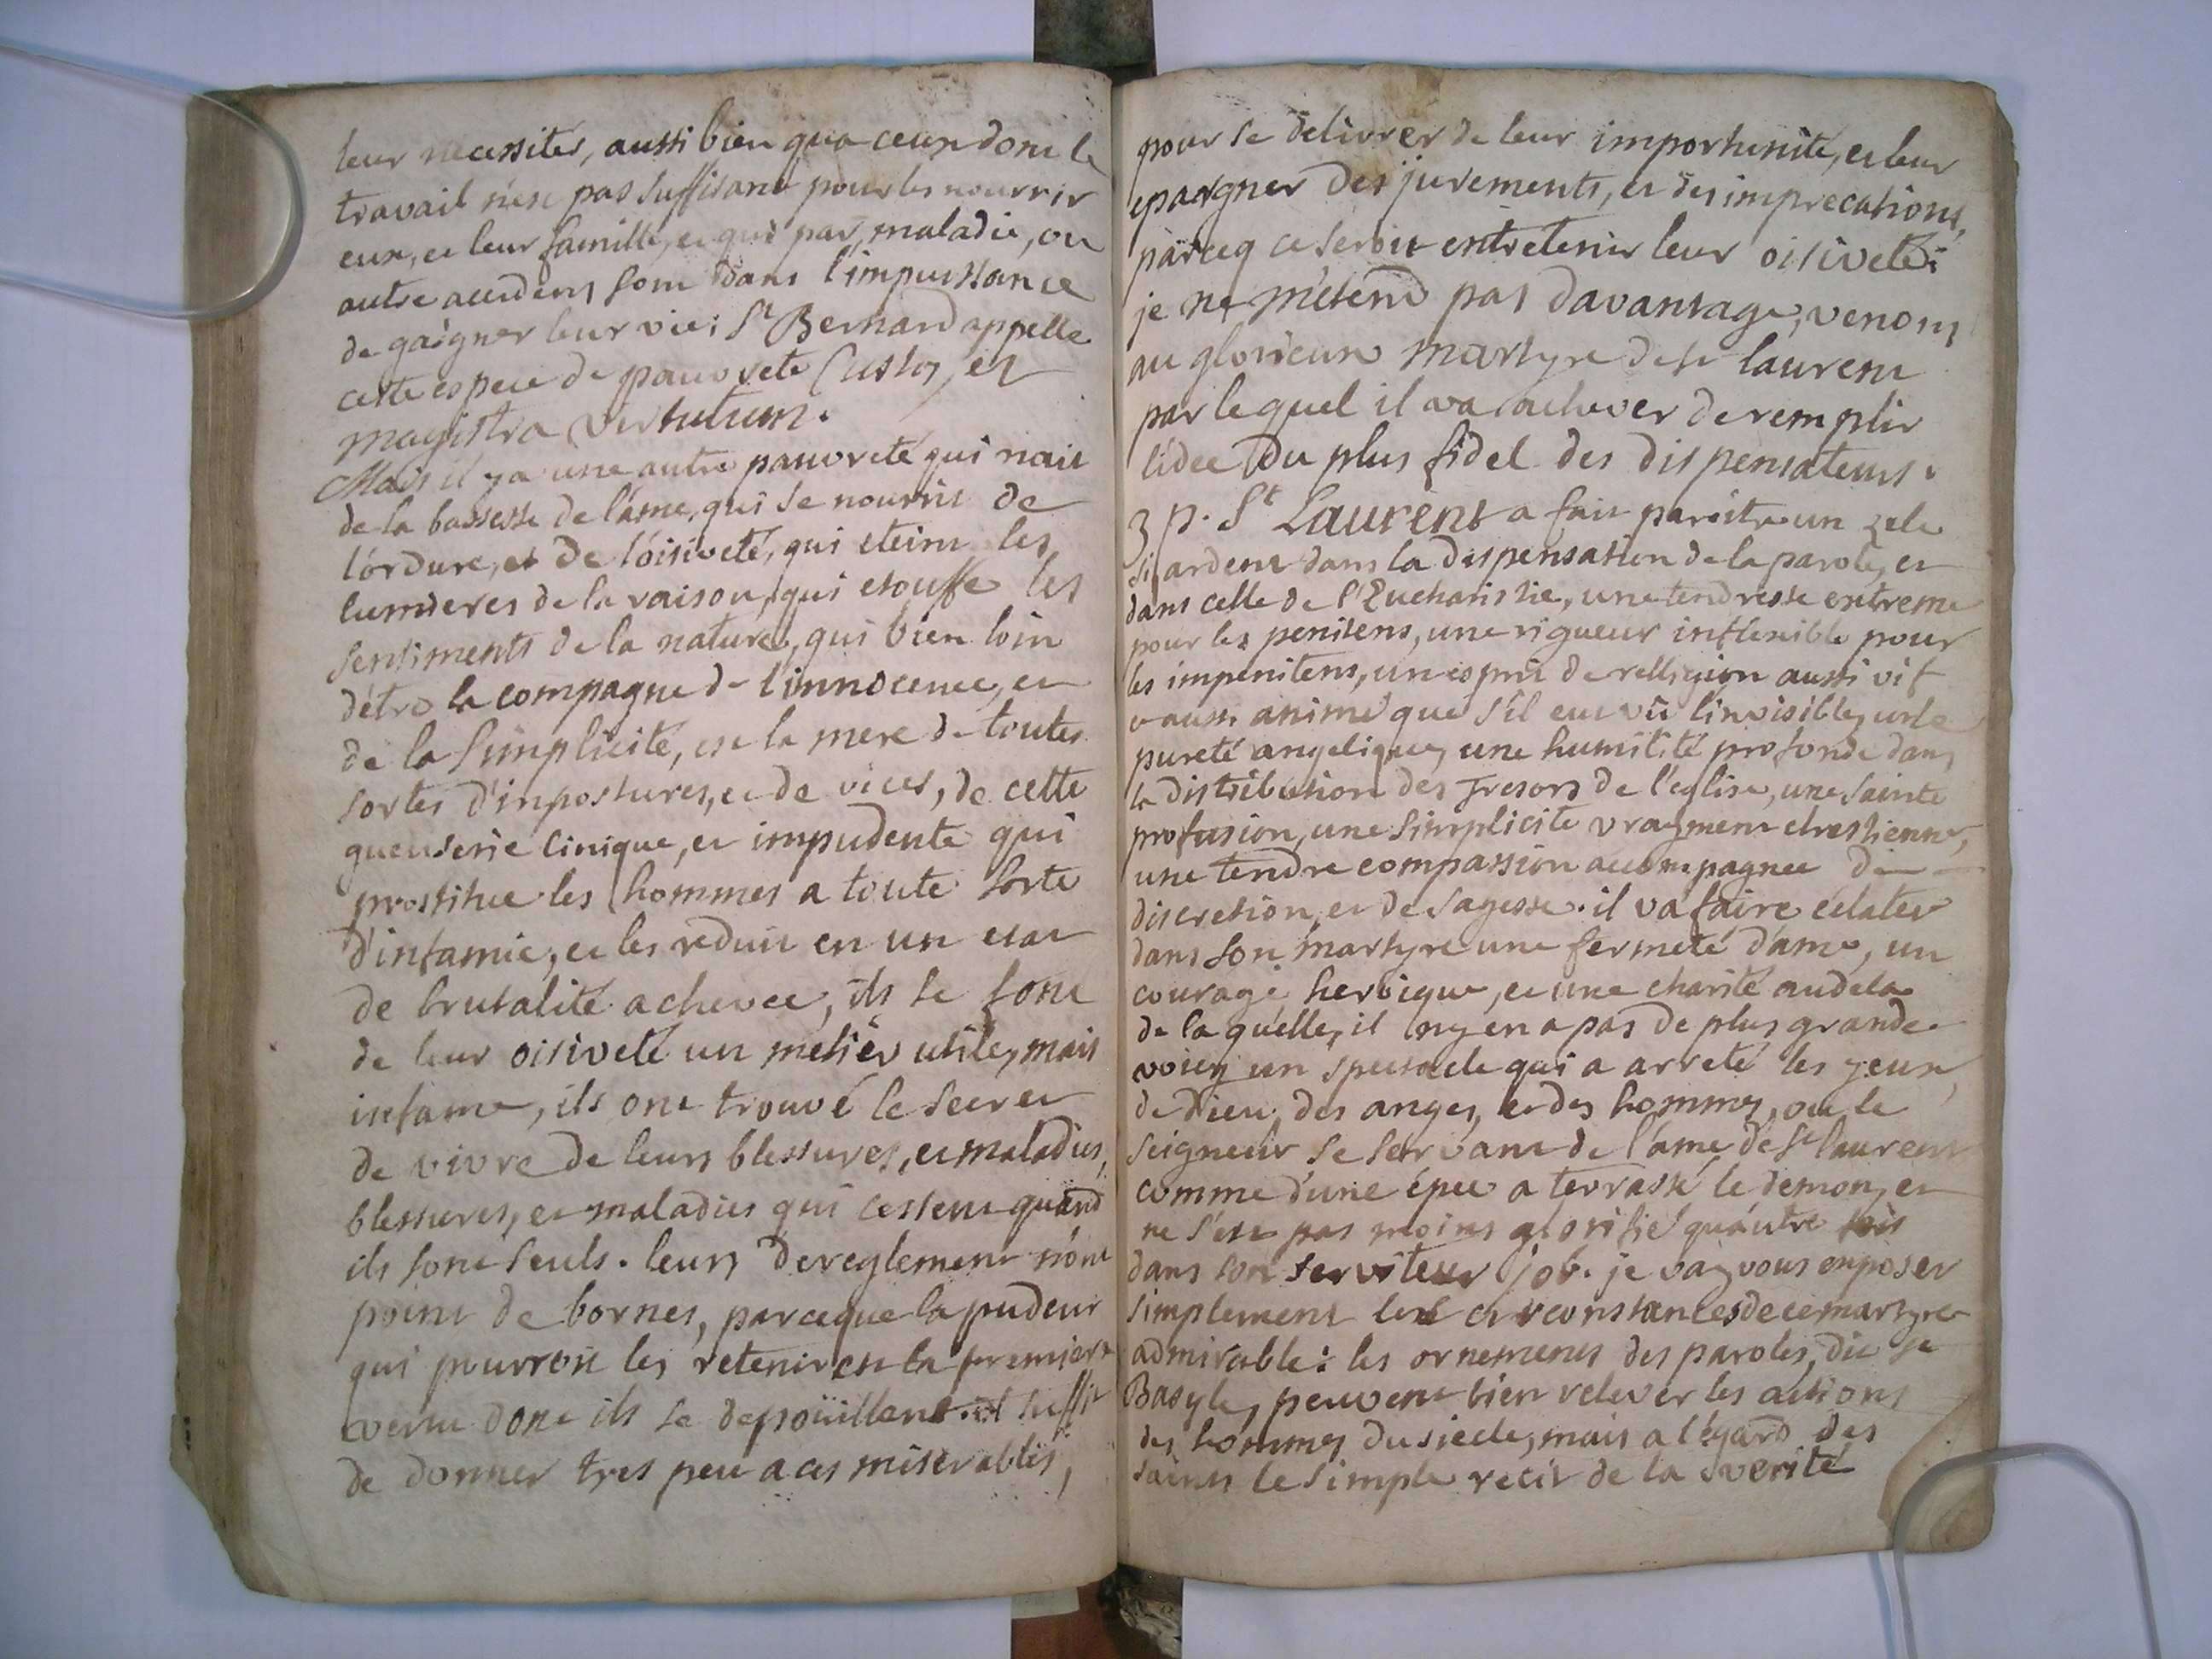 leur necessites, aussi bien qua ceux dont le
travail n'est pas suffisant pour les nourrir
eux, et leur famille, et qui par maladie, ou
autre accidens sont dans l'impuissance
de gaigner leur vie; St Bernard appelle
cette espece de pauvreté Custos, et
magistra virtutum.
Mais il y a une autre pauvreté qui nait
de la bassesse de l'ame, qui se nourrit de
l'ordure, et de l'oisiveté, qui eteint les
lumieres de la raison, qui etouffe les
sentiments de la nature, qui bien loin
d'étre la compagne de l'innocence, et
de la simplicité, est la mere de toutes
sortes d'impostures, et de vices, de cette
gueuserie cinique, et impudente qui
prostitue les hommes a toute sorte
d'infamie, et les reduit en un etat
de brutalité achevee, ils se font
de leur oisiveté un metier utile, mais
infame, ils ont trouvé le secret
de vivre de leurs blessures, et maladies,
blessures, et maladies qui cessent quand
ils sont seuls. leurs dereglement n'ont
point de bornes, parceque la pudeur
qui pourroit les retenir est la premiere
vertu dont ils se depoüillent. il suffit
de donner tres peu a ces miserables,
pour se delivrer de leur importunité, et leur
epargner des jurements, et des imprecations,
parceq ce seroit entretenir leur oisiveté:
je ne m'étend pas davantage, venons
au glorieux martyre de st laurent
par lequel il va achever de remplir
l'idee du plus fidel des dispensateurs.
3 p. St Laurent a fait paroitre un zele
si ardent dans la dispensation de la parole, et
dans celle de l'Eucharistie, une tendresse extreme
pour les penitens, une rigueur inflexible pour
les impenitens, un esprit de relligion aussi vif
et aussi animé que s'il eut vû l'invisible, une
pureté angelique, une humilité profonde dans
la distribution des Tresors de l'eglise, une sainte
profusion, une simplicité vrayment chrestienne,
une tendre compassion accompagnee de
discretion, et de sagesse. il va faire eclater
dans son martyre une fermeté d'ame, un
courage heroique, et une charité audela
de la quelle, il ny en a pas de plus grande.
voicy un spectacle qui a arreté les yeux
de Dieu, des anges, et des hommes, ou le
seigneur se servant de l'ame de St laurent
comme d'une épée a terrassé le demon, et
ne s'est pas moins glorifié qu'autre fois
dans son serviteur job. je vay vous exposer
simplement les circonstances de ce martyre
admirable: les ornemens des paroles, dit st
Basyle, peuvent bien relever les actions
des hommes du siecle, mais a l'égard des
saints le simple recit de la verité